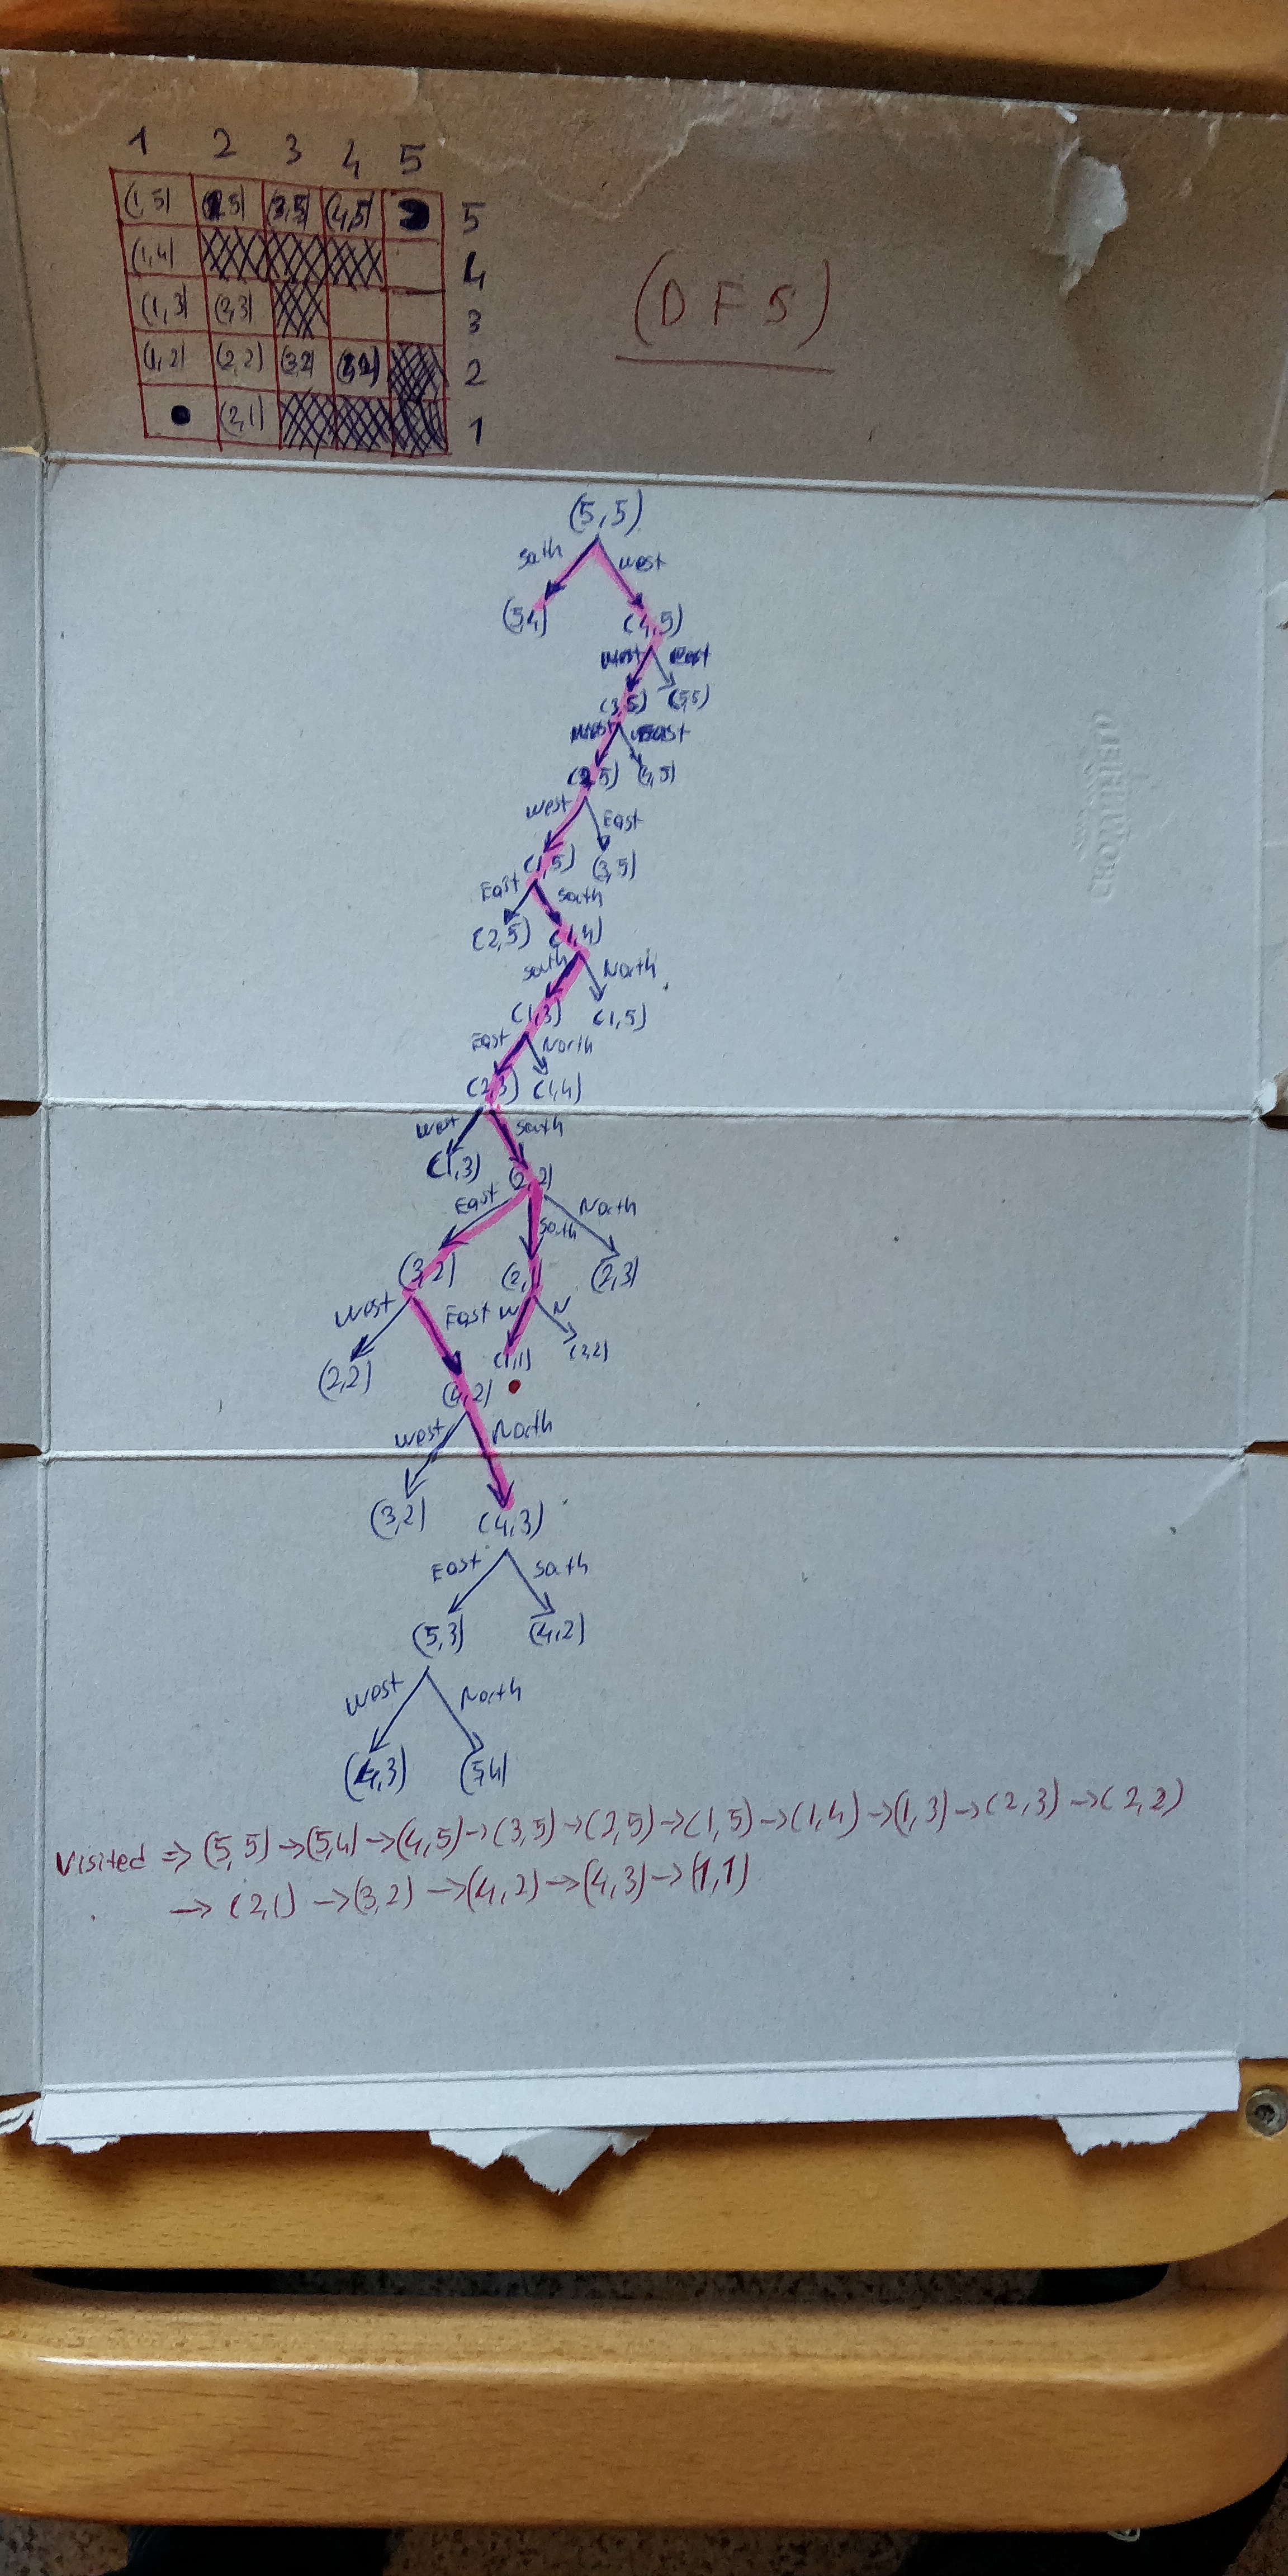 1 2 3 4 5
(1,5) (2,5) (3,5) (4,5) 5
(1,4) 4
(1,3) (2,3) 3
(1,2) (2,2) (3,2) 2
(2,1) 1
(DFS)
(5,5)
South West
(5,4) (4,5)
West East
(3,5) (5,5)
West East
(2,5) (4,5)
West East
(1,5) (3,5)
East South
(2,5) (1,4)
South North
(1,3) (1,5)
East North
(2,3) (1,4)
West South
(1,3) (2,2)
East South North
(3,2) (2,1) (2,3)
West East W N
(2,2) (4,2) (1,1) (2,2)
West North
(3,2) (4,3)
East South
(5,3) (4,2)
West North
(4,3) (5,4)
Visited => (5,5) -> (5,4) -> (4,5) -> (3,5) -> (2,5) -> (1,5) -> (1,4) -> (1,3) -> (2,3) -> (2,2)
-> (2,1) -> (3,2) -> (4,2) -> (4,3) -> (1,1)